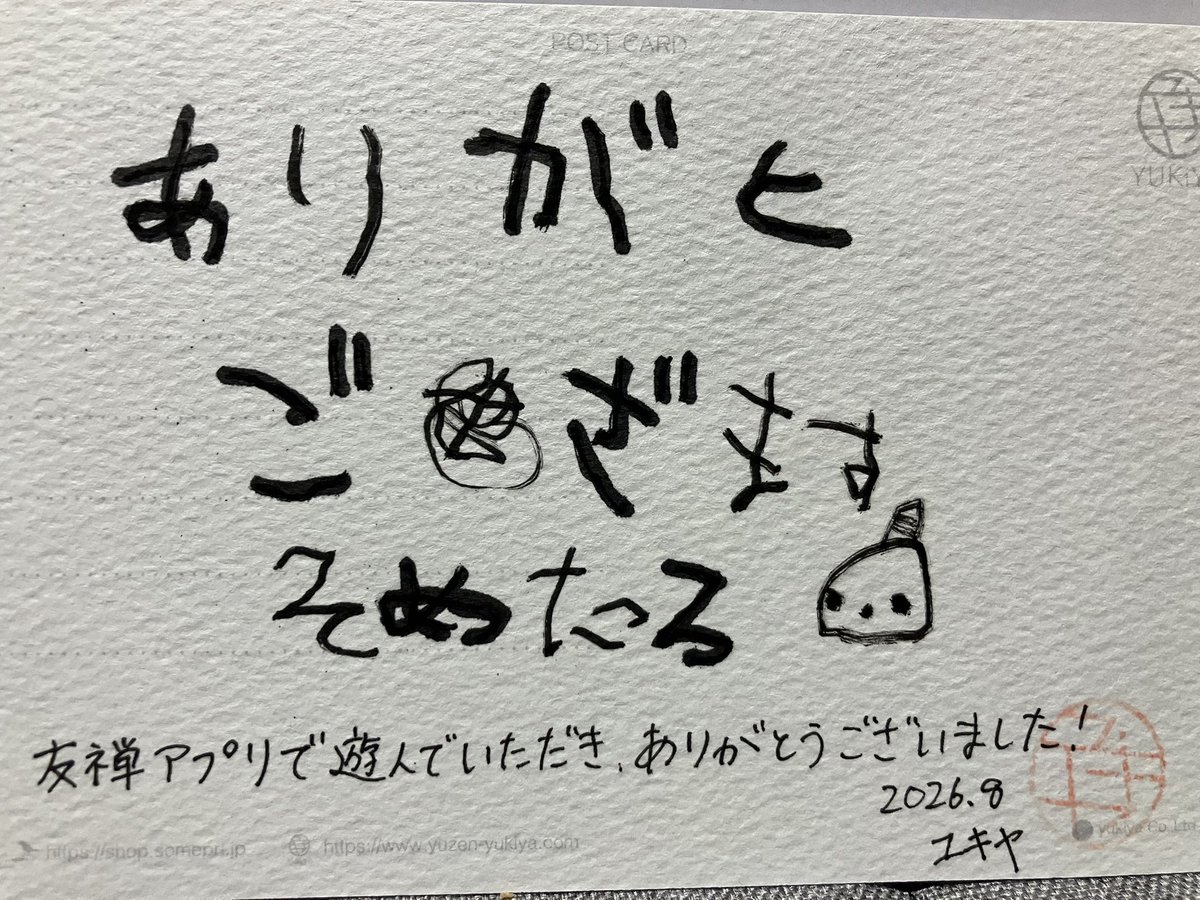 POST CARD
YUKiY
ありがと
ござます
そめたろ
友禅アプリで遊んでいただき、ありがとうございました!
2026.8
ユキヤ
Yukiya Co.Ltd
https://shop.somepri.jp
https://www.yuzen-yukiya.com